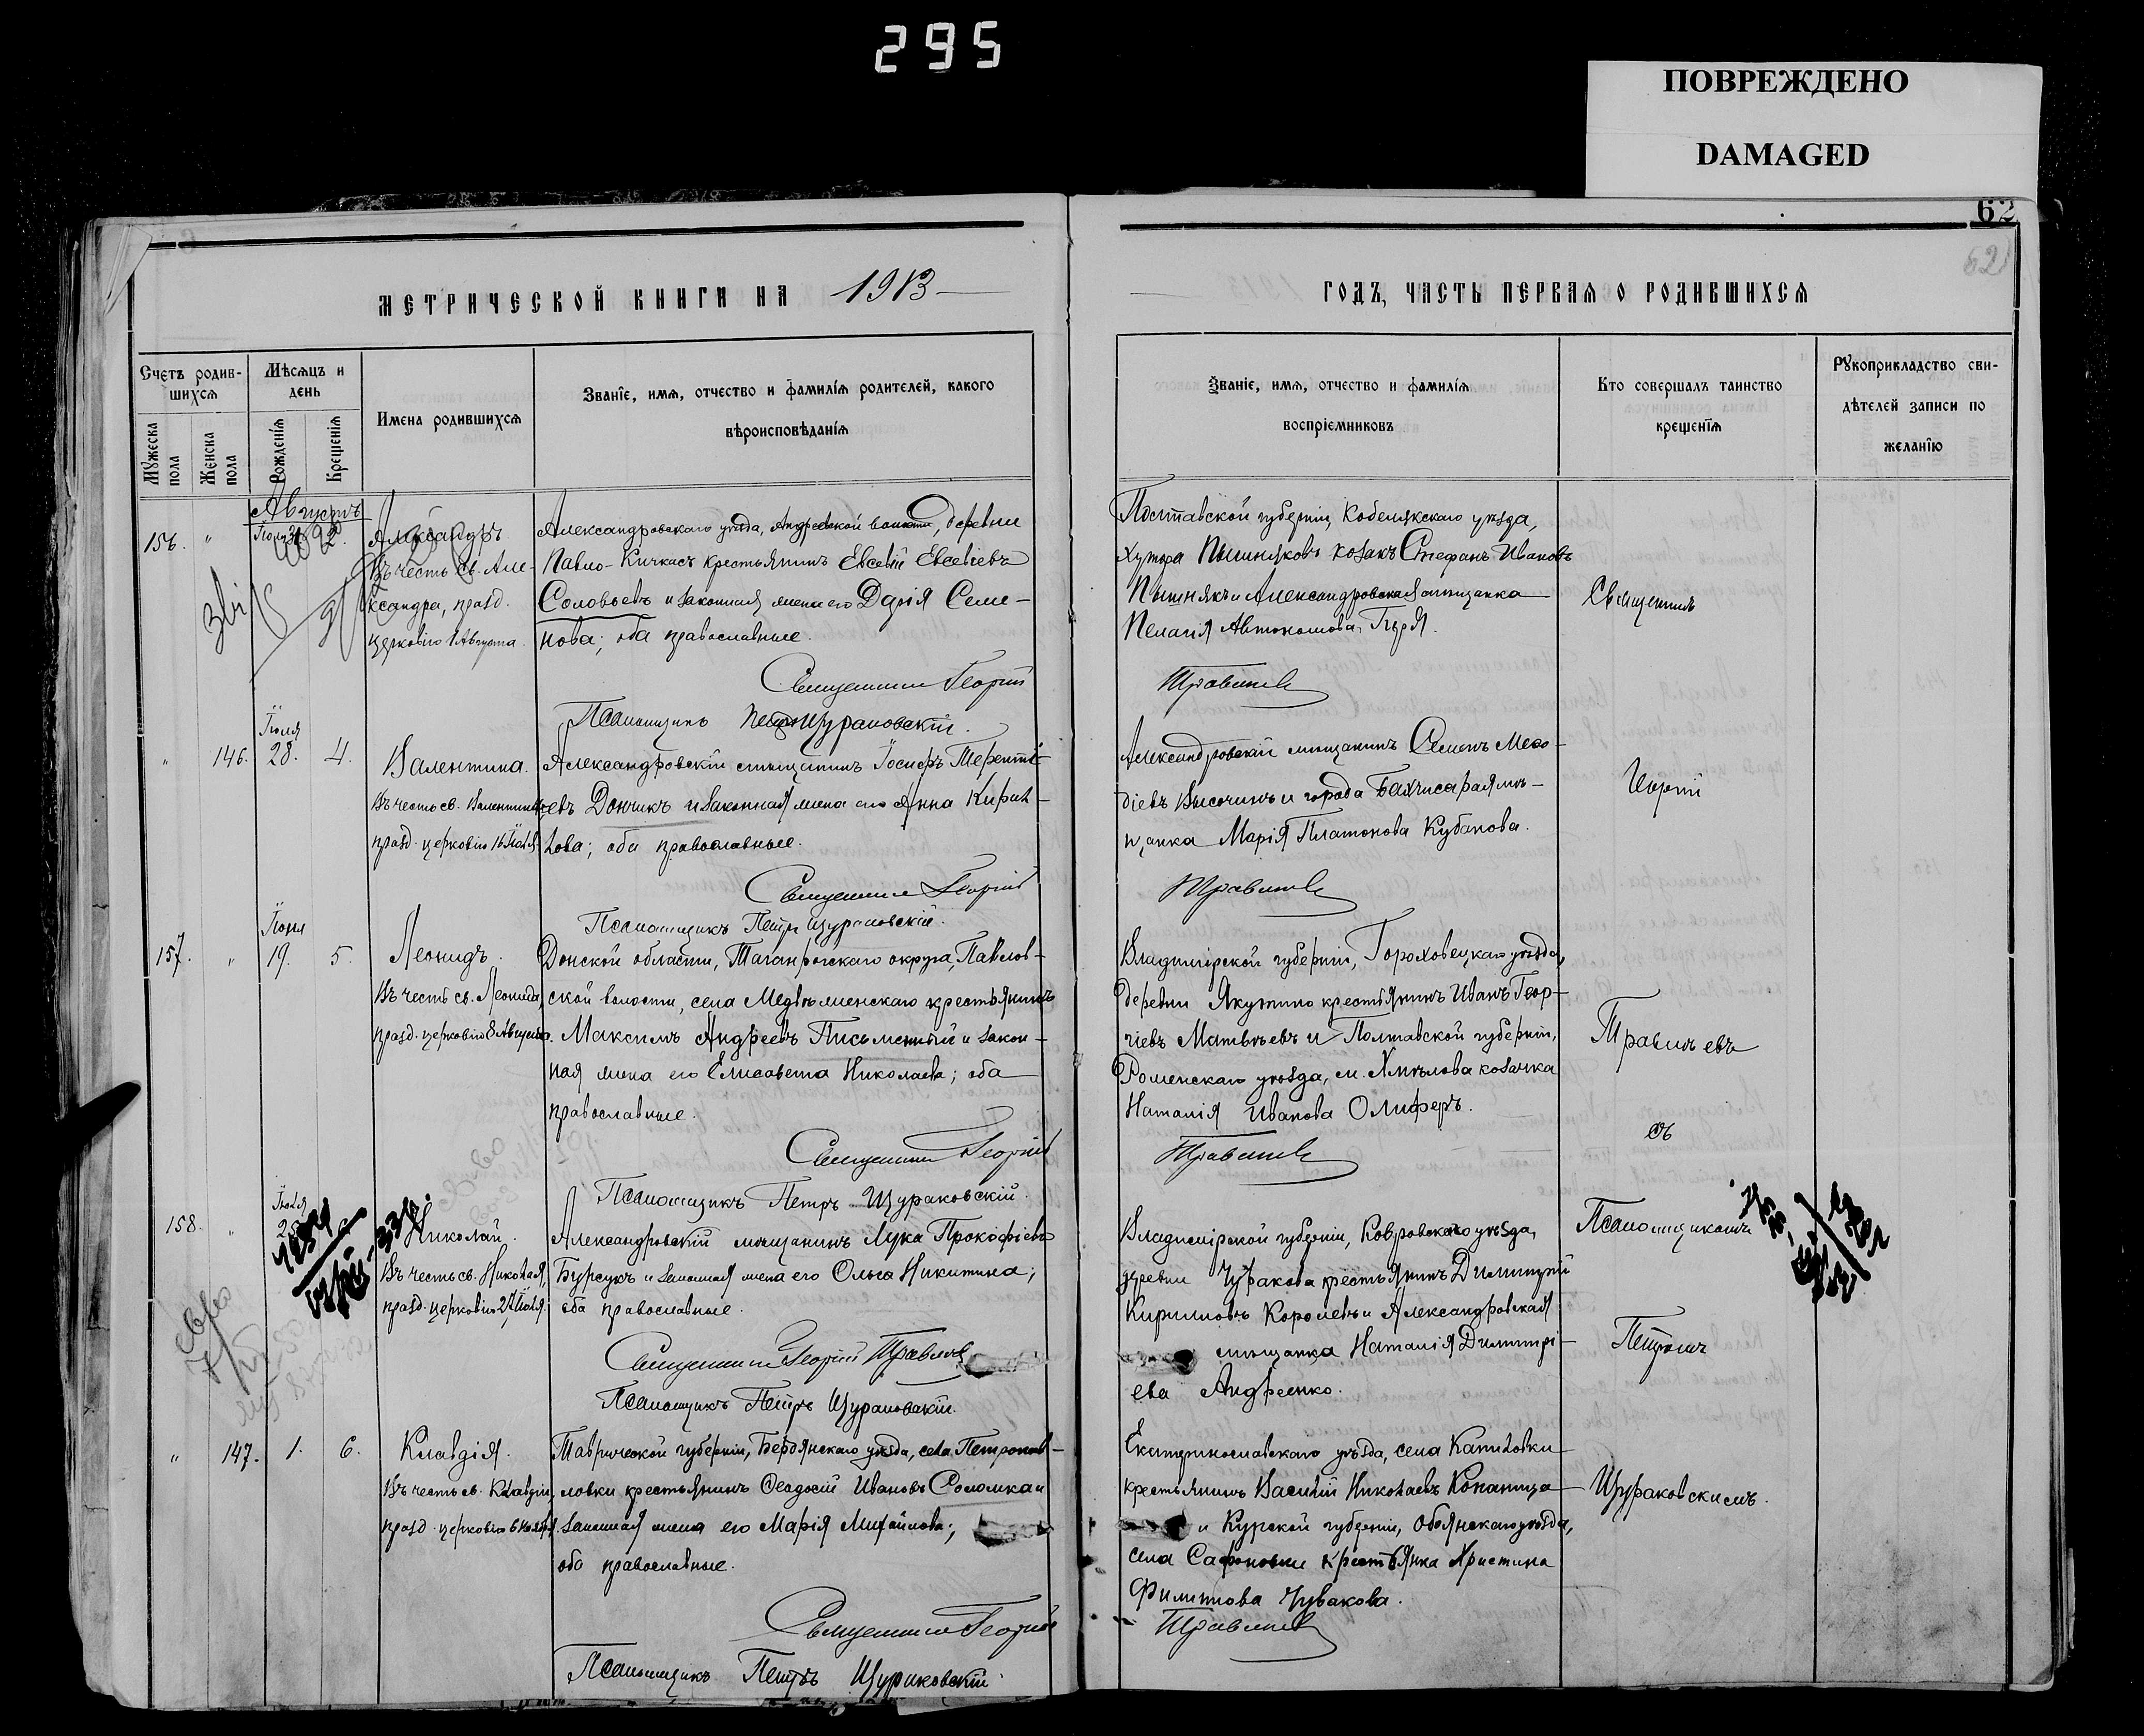 295
ПОВРЕЖДЕНО
DAMAGED
62
62
МЕТРИЧЕСКОЙ КНИГИ НА 1913
ГОДЪ, ЧАСТЬ ПЕРВАЯ О РОДИВШИХСЯ
Счетъ родившихся
Мужеска пола
Женска пола
Мѣсяцъ и день
Рожденія
Крещенія
Имена родившихся
Званіе, имя, отчество и фамилія родителей, какого
вѣроисповѣданія
Званіе, имя, отчество и фамилія
воспріемниковъ
Кто совершалъ таинство
крещенія
Рукоприкладство сви-
дѣтелей записи по
желанію
Августъ
156. " Іюля 31 2.
Александръ
Въ честь св. Але-
ксандра, празд.
церковію 1 Августа.
Александровскаго уѣзда, Андреевской волости, деревни
Павло-Кичкасъ крестьянинъ Евсевій Евсевіевъ
Соловьевъ и законная жена его Дарія Семе-
нова; оба православные.
Священникъ Георгій
Псаломщикъ Петръ Щураковскій.
Полтавской губерніи, Кобелякскаго уѣзда,
хутора Пышняковъ козакъ Стефанъ Ивановъ
Пышнякъ и Александровская мѣщанка
Пелагія Автономова
Травиневъ
Священникъ
" 146. Іюля 28. 4.
Валентина.
Въ честь св. Валентины,
празд. церковію 16 Іюля.
Александровскій мѣщанинъ Іосифъ Терентіе-
евъ Дончикъ и законная жена его Анна Кирил-
лова; оба православные.
Священникъ Георгій
Псаломщикъ Петръ Щураковскій.
Александровскій мѣщанинъ Семенъ Меѳо-
діевъ Височинъ и города Бахчисарая мѣ-
щанка Марія Платонова Кубанова.
Травиневъ
Георгій
157. " Іюля 19. 5.
Леонидъ.
Въ честь св. Леонида,
празд. церковію 8 Августа.
Донской области, Таганрогскаго округа, Павлов-
ской волости, села крестьянинъ
Максимъ Андреевъ Письменный и закон-
ная жена его Елисавета Николаева; оба
православные.
Священникъ Георгій
Псаломщикъ Петръ Щураковскій.
Владимірской губерніи, Гороховецкаго уѣзда,
деревни Якутино крестьянинъ Иванъ Геор-
гіевъ Матвѣевъ и Полтавской губерніи,
Роменскаго уѣзда, м. Хмѣлова козачка
Наталія Иванова Олиферъ.
Травиневъ
Травиневъ
съ
158. " Іюля 25.
Николай.
Въ честь св. Николая,
празд. церковію 27 Іюля.
Александровскій мѣщанинъ Лука Прокофіевъ
Бурсукъ и законная жена его Ольга Никитина;
оба православные.
Священникъ Георгій Травиневъ
Псаломщикъ Петръ Щураковскій.
Владимірской губерніи, Ковровскаго уѣзда,
деревни Чуракова крестьянинъ Димитрій
Кирилловъ Королевъ и Александровская
мѣщанка Наталія Димитрі-
ева Андреенко.
Псаломщикомъ
Петромъ
" 147. 1. 6.
Клавдія.
Въ честь св. Клавдіи,
празд. церковію 6 Ноября.
Таврической губерніи, Бердянскаго уѣзда, села Петропав-
ловки крестьянинъ Ѳеодосій Ивановъ Соломка и
законная жена его Марія Михайлова;
оба православные.
Священникъ Георгій
Псаломщикъ Петръ Щураковскій.
Екатеринославскаго уѣзда, села Капиловки
крестьянинъ Василій Николаевъ Копаница
и Курской губерніи, Обоянскаго уѣзда,
села Сафоновки крестьянка Христина
Филиппова Чувакова.
Травиневъ
Щураковскимъ.